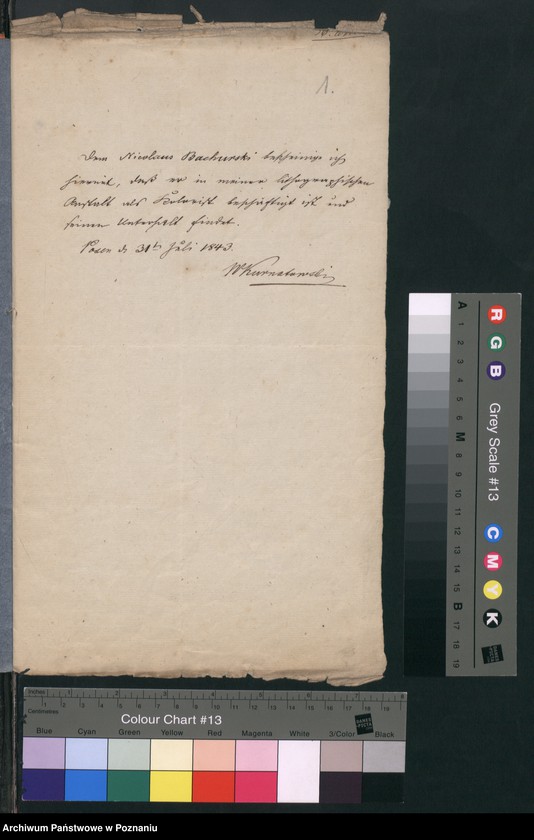 1.
Dem Nicolaus Bachurski bescheinige ich
hiermit, daß er in meiner lithographischen
Anstalt als Kolorist beschäftigt ist und
seinen Unterhalt findet.
Posen d. 31t Juli 1843.
WKurnatowski
A 1 2 3 4 5 6 M 8 9 10 11 12 13 14 15 B 17 18 19
R G B Grey Scale #13 C M Y K
Inches 1 2 3 4 5 6 7 8
Centimetres 1 2 3 4 5 6 7 8 9 10 11 12 13 14 15 16 17 18 19
Colour Chart #13
Blue Cyan Green Yellow Red Magenta White 3/Color Black
DANES PICTA
Archiwum Państwowe w Poznaniu